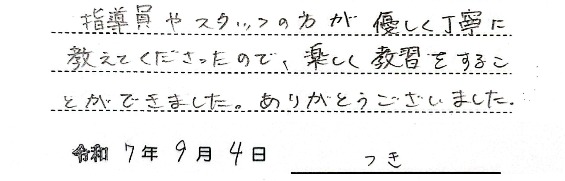 指導員やスタッフの方が優しく丁寧に
教えてくださったので、楽しく教習をするこ
とができました。ありがとうございました.
令和 7年 9月 4日 つき